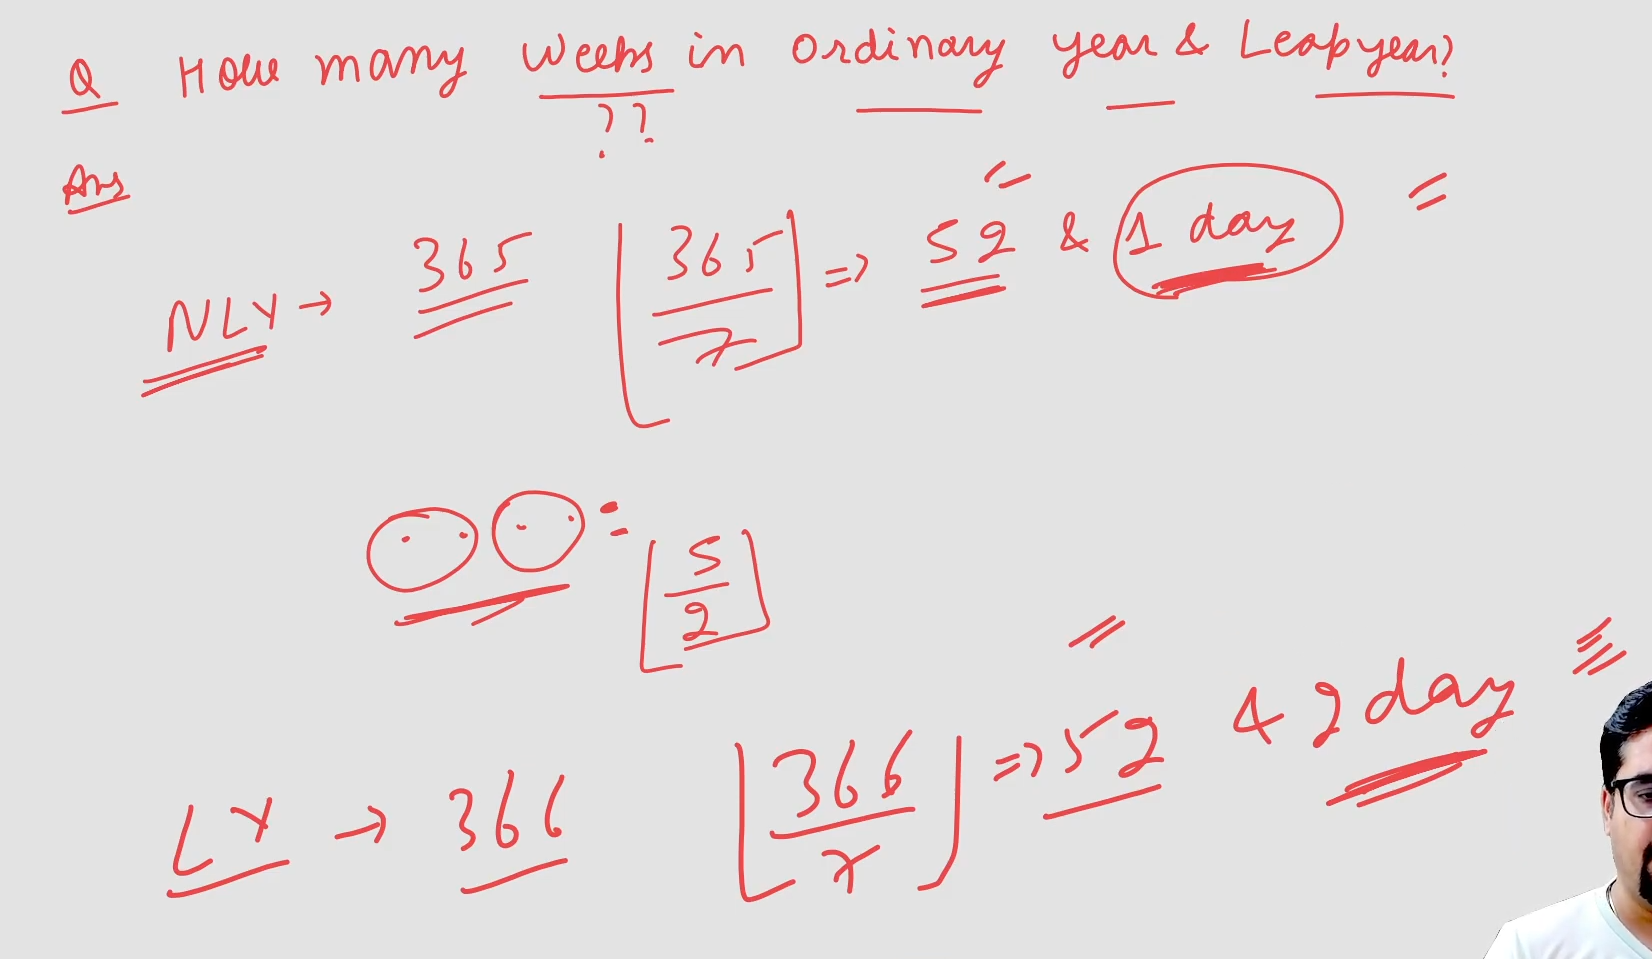 Q How many Weeks in Ordinary year & Leap year?
??
Ans
NLY → 365 ⌊365/7⌋ => 52 & 1 day
⌊5/2⌋
LY → 366 ⌊366/7⌋ => 52 & 2 day